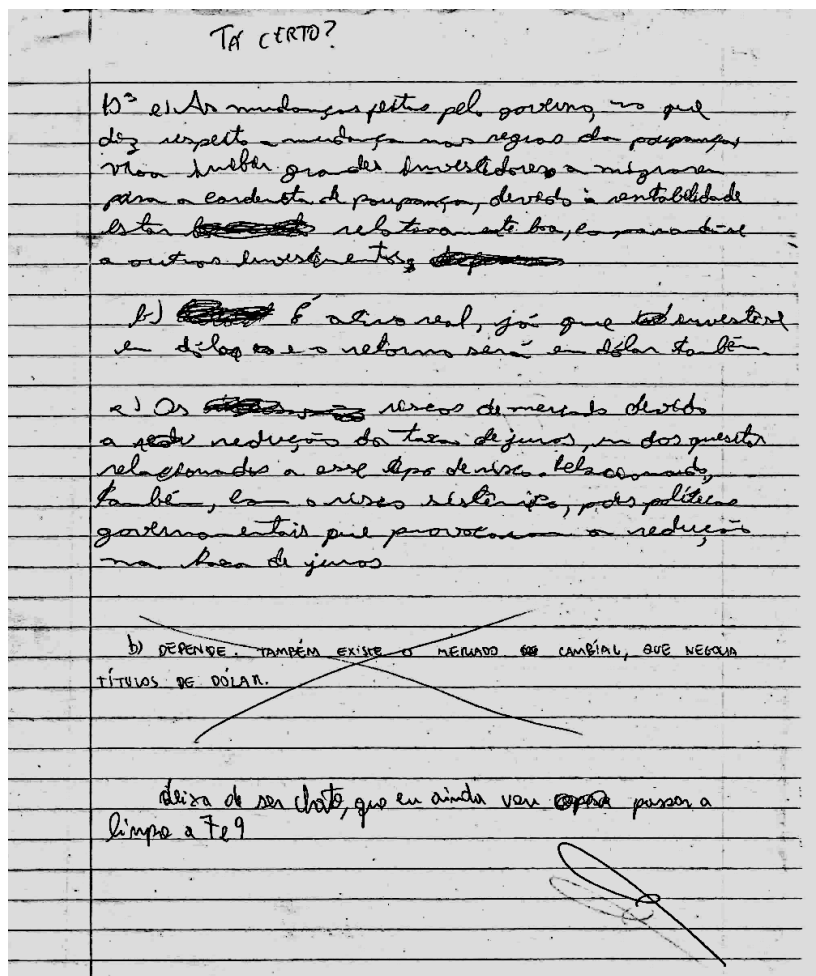 TÁ CERTO?
a) As mudanças feitas pelo governo, no que
diz respeito a mudança nas regras da poupança,
vão grandes investidores a migrarem
para a caderneta de poupança, devido à rentabilidade
estar relativamente boa, comparando-se
a outros investimentos
b) É ativo real, já que investirá
em dólar e o retorno será em dólar também.
c) Os riscos de mercado devido
a redução da taxa de juros, um dos quesitos
relacionados a esse tipo de risco. Relacionado,
também, com o risco sistêmico, pois políticas
governamentais que provocaram a redução
na taxa de juros
b) DEPENDE. TAMBÉM EXISTE O MERCADO CAMBIAL, QUE NEGOCIA
TÍTULOS DE DÓLAR.
deixa de ser chato, que eu ainda vou passar a
limpo a 7 e 9